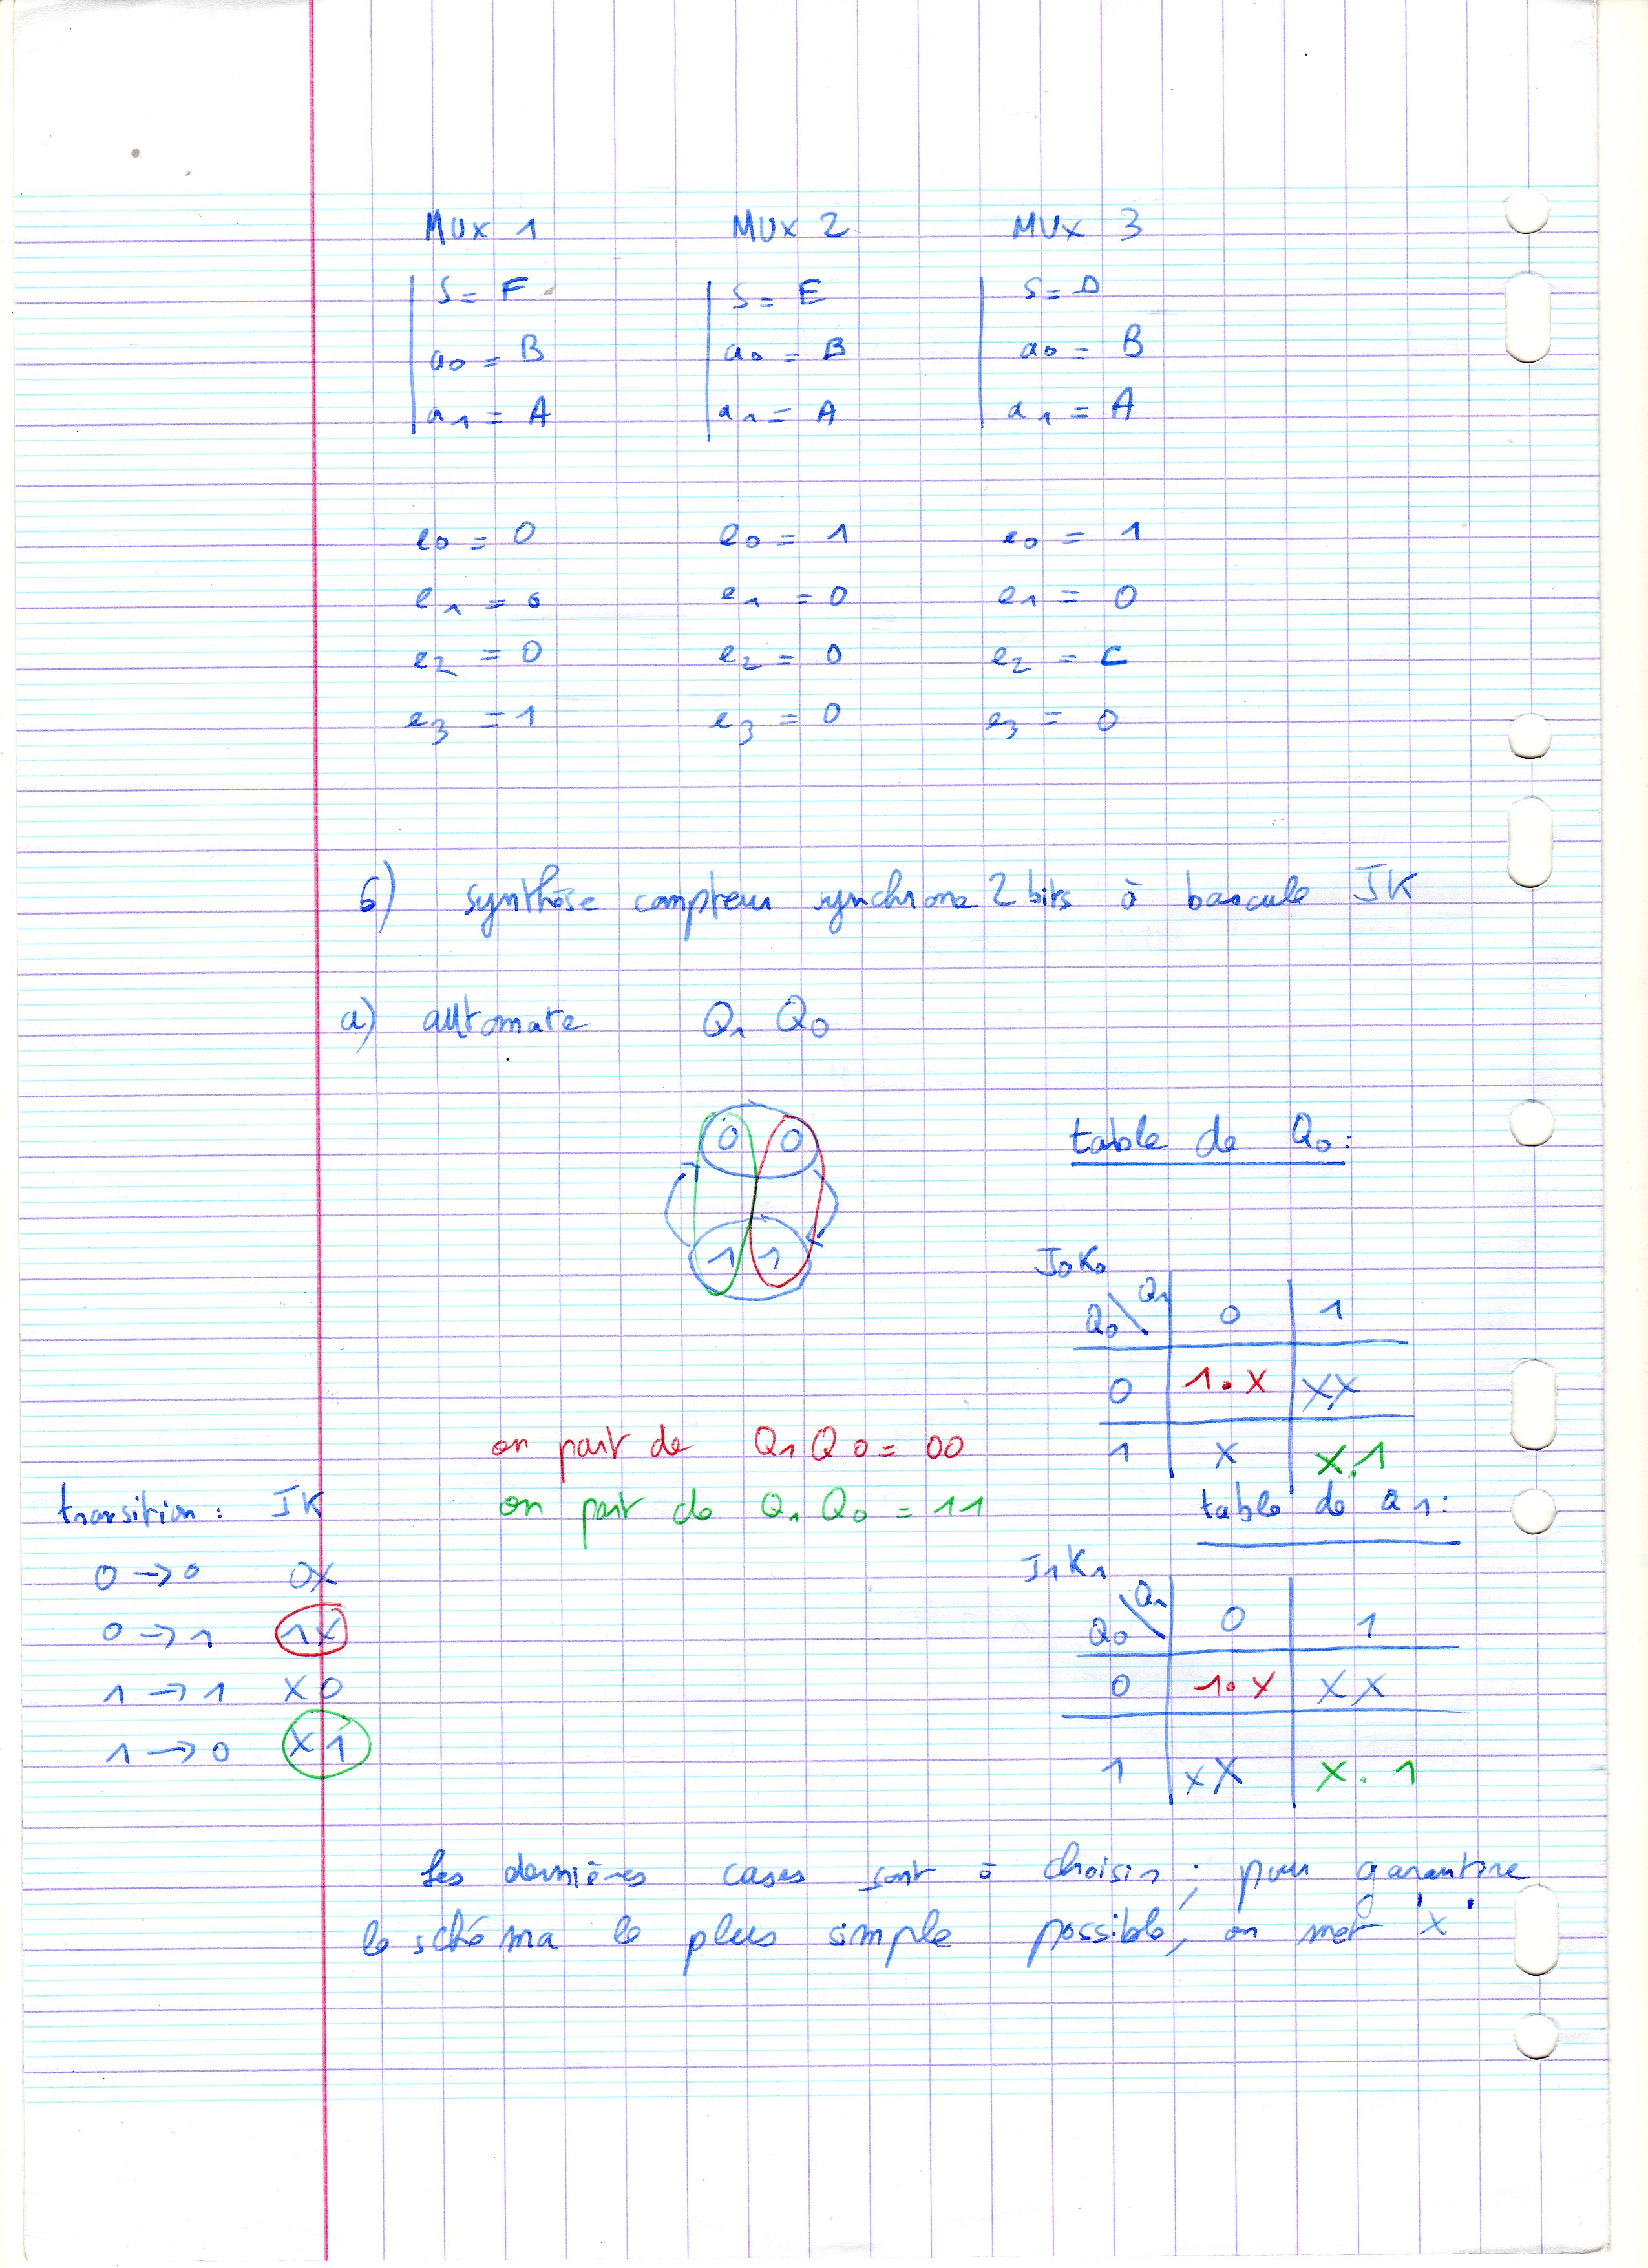 MUX 1 MUX 2 MUX 3
S = F S = E S = D
a0 = B a0 = B a0 = B
a1 = A a1 = A a1 = A
e0 = 0 e0 = 1 e0 = 1
e1 = 0 e1 = 0 e1 = 0
e2 = 0 e2 = 0 e2 = C
e3 = 1 e3 = 0 e3 = 0
6) synthèse compteur synchrone 2 bits à bascule JK
a) automate Q1 Q0
0 0
1 1
table de Q0 :
J0K0
Q0 \ Q1 0 1
0 1.X XX
1 X X.1
on part de Q1 Q0 = 00
on part de Q1 Q0 = 11
transition : JK
0 → 0 0X
0 → 1 1X
1 → 1 X0
1 → 0 X1
table de Q1 :
J1K1
Q0 \ Q1 0 1
0 1.X XX
1 XX X.1
les dernières cases sont à choisir ; pour garantire
le schéma le plus simple possible, on met 'X'